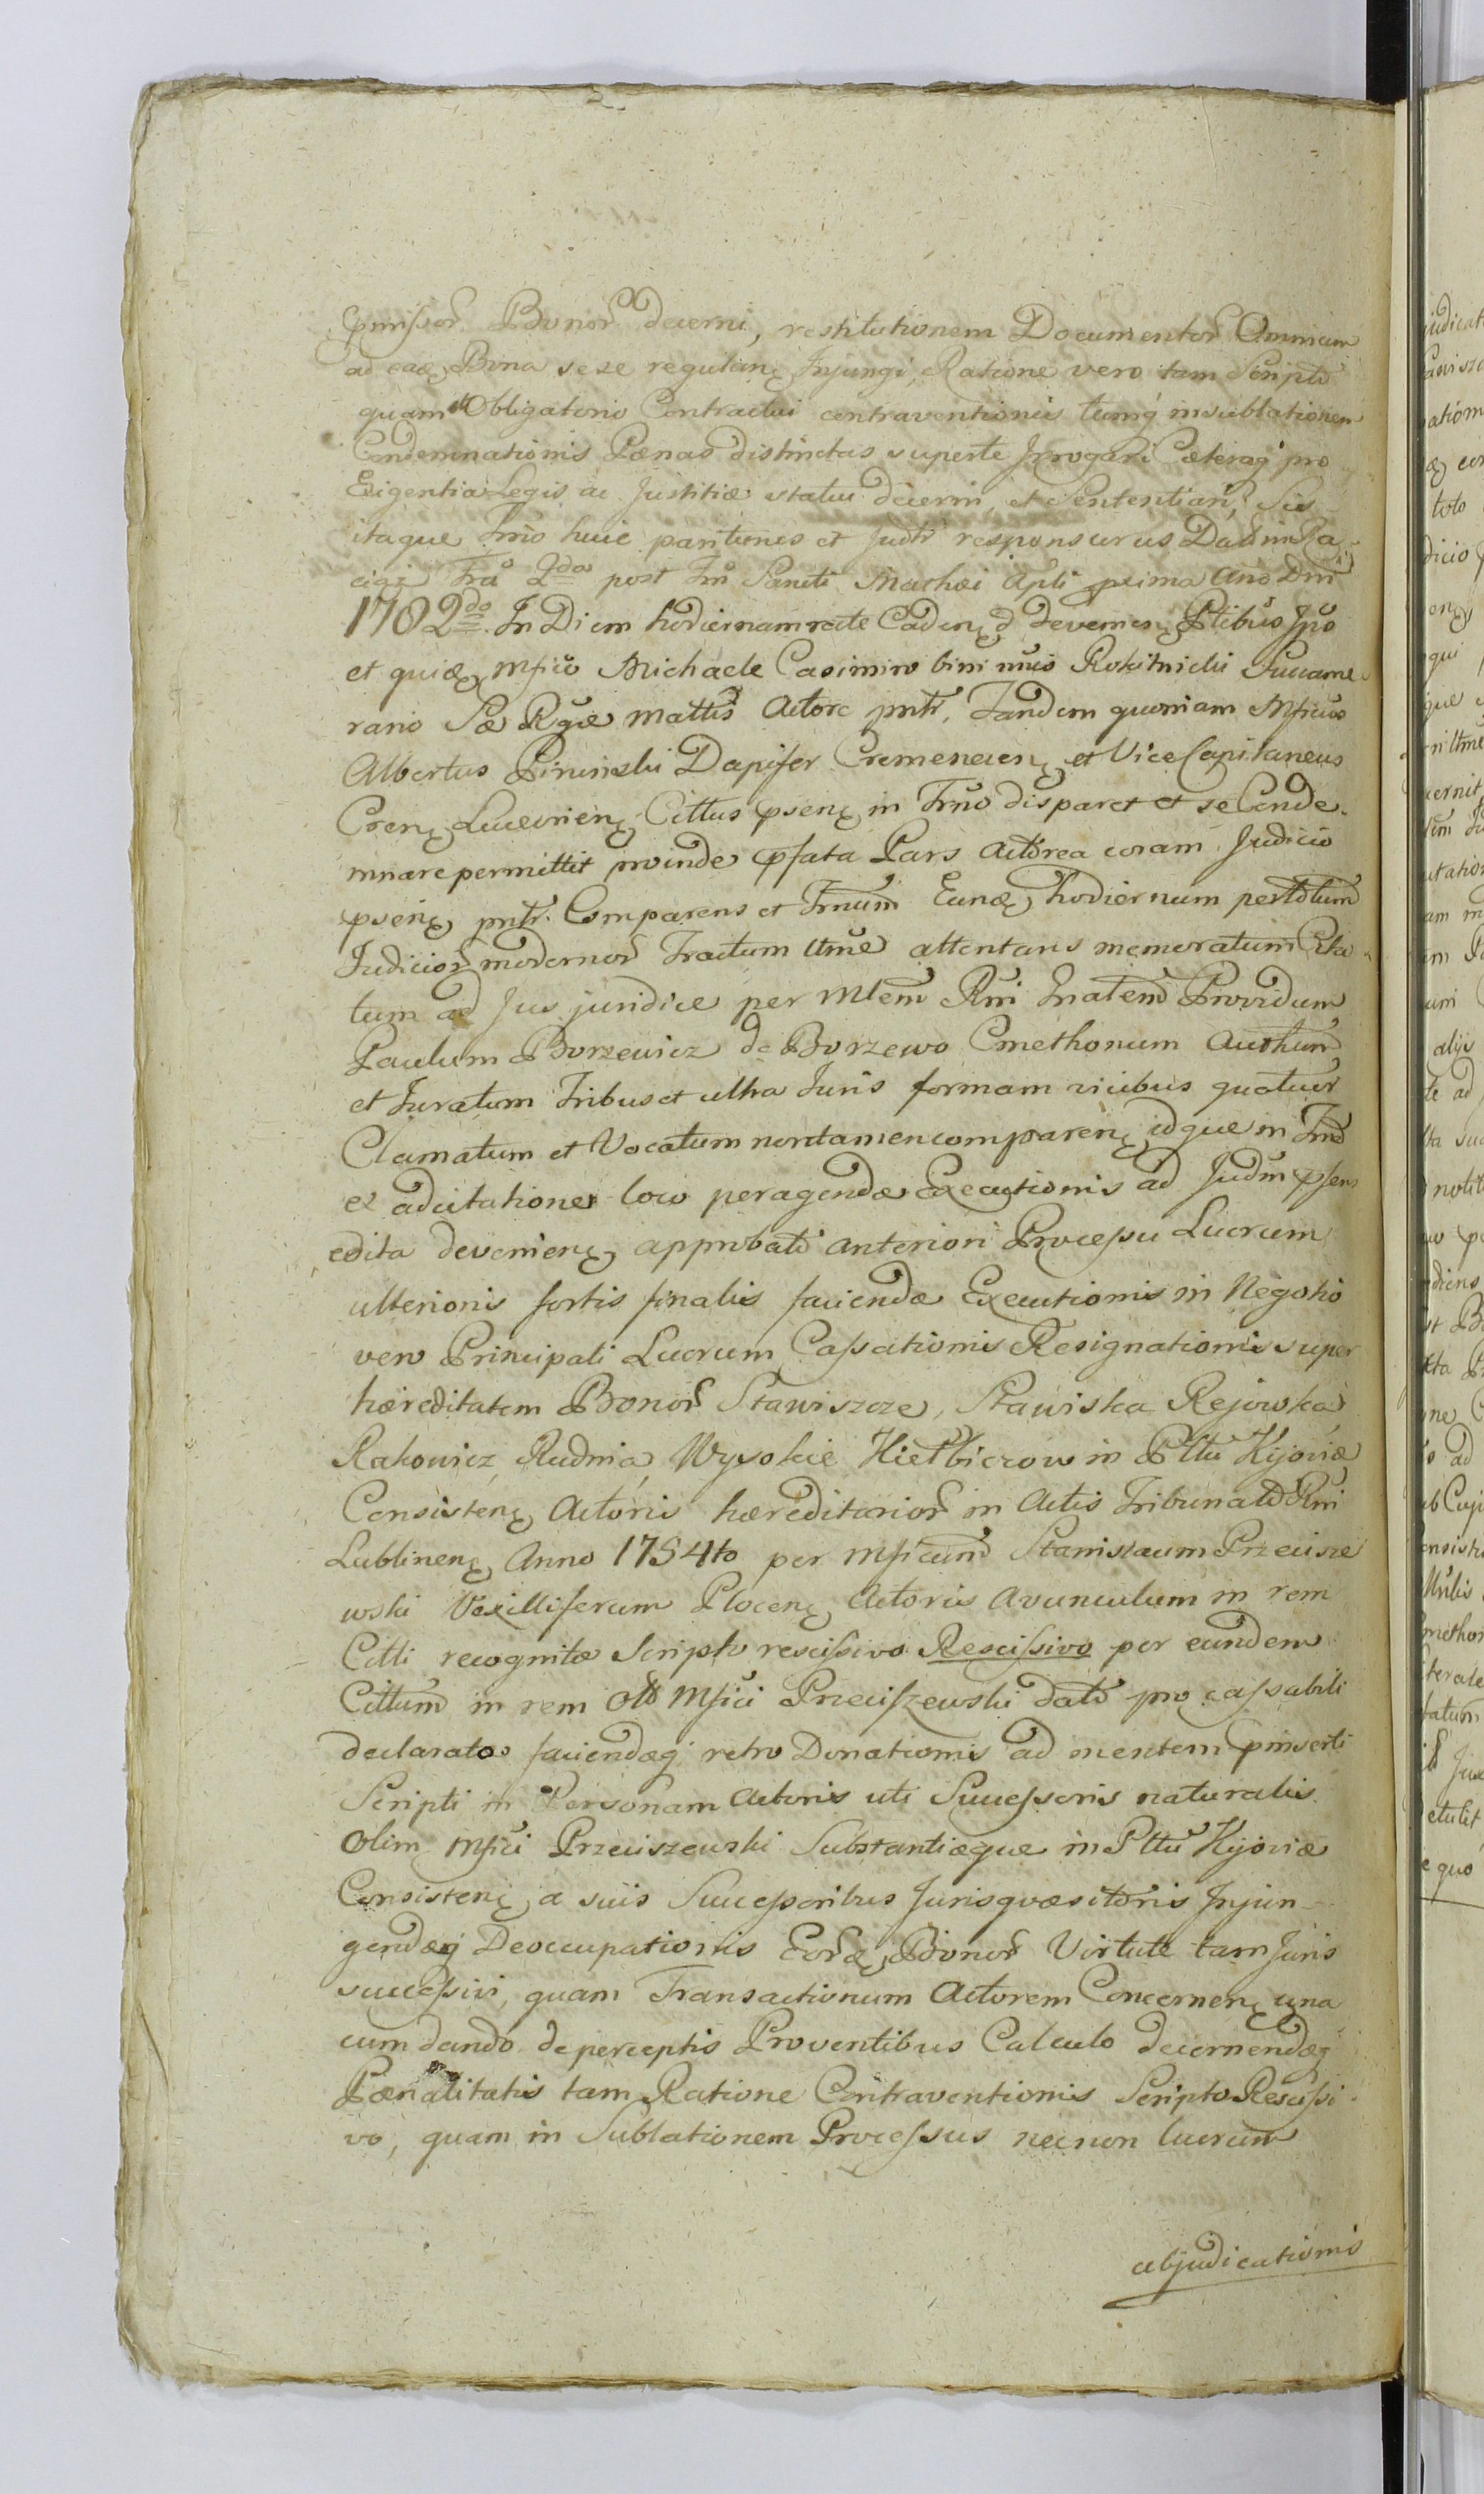 pmissor Bonor decerni, restitutionem Documentor Omnium
ad eadę Bona sese regulanę Injungi Ratione vero tam Scripto
quam Obligatorio Contractui contraventionis tumq insublationem
Condemnationis Pænas distinctas superte Irrogari Cæteraq pro
Exigentia Legis ac Justitiæ statui decerni, et Sententiari, Sis
itaque Trno huic pariturus et Judtr responsurus Datum Ra
cigż Fra 2da post Fm Sancti Mathæi Apli prima Ano Dni
1782do. In Diem hodiernam recte Cadenę & devenienę Ptibus Ipso
et quidę Mfico Michaele Casimiro bini nuis Rokitnicki Succame
rario Sæ Rgiæ Mattis Actore pntr, Tandem quoniam Mficus
Albertus Pininski Dapifer Cremenecenę et Vice Capitaneus
Crenę Luceorienę Cittus psenę in Trno disparet et se Conde-
mnare permittit proinde pfata Pars Actorea coram Judicio
psenę pntr. Comparens et Trnum Eundę hodiernum pertotum
Judicior modernor Tractum Ctme attentans memoratum Cita-
tum ad Jus juridice per Mtem Rni Gnalem Providum
Paulum Borzewicz de Borzewo Cmethonum Authum
et Juratum Tribus et ultra Juris formam vicibus quatuor
Clamatum et Vocatum nontamen comparenę idque in Trno
ex adcitatione loco peragendæ Executionis ad Judm psens
edita devenienę approbato anteriori Processu Lucrum
ulterioris fortis finalis faciendæ Executionis in Negotio
vero Principali Lucrum Cassationis Resignationis super
hæreditatem Bonor Stawiszcze, Stawiska Rejowska
Rakowicz, Rudnia, Wysokie Kiełbiczow in Pttu Kijoviæ
Consistenę Actoris hæreditarior in Actis Tribunal Rni
Lublinenę Anno 1754to per Mficum Stanislaum Przecisze
wski Vexilliferum Plocenę Actoris Avunculum in rem
Citti recognitæ Scripto rescissivo Rescissivo per eundem
Cittum in rem Ol Mfici Przeciszewski dato pro cassabili
declarato faciendæq retro Donationis ad mentem pinserti
Scripti in Personam Actoris uti Successoris naturalis
Olim Mfici Przeciszewski Substantiæque in Pttu Kijoviæ
Consistenę a suis Successoribus Jurisquæsitoris Injun-
gendæq Deoccupationis Eordę Bonor Virtute tam Juris
successivi, quam Transactionum Actorem Concernenę una
cum dando de perceptis Proventibus Calculo decernendæq
Pænalitatis tam Ratione Contraventionis Scripto Rescissi-
vo, quam in Sublationem Processus necnon lucrum
abjudicationis